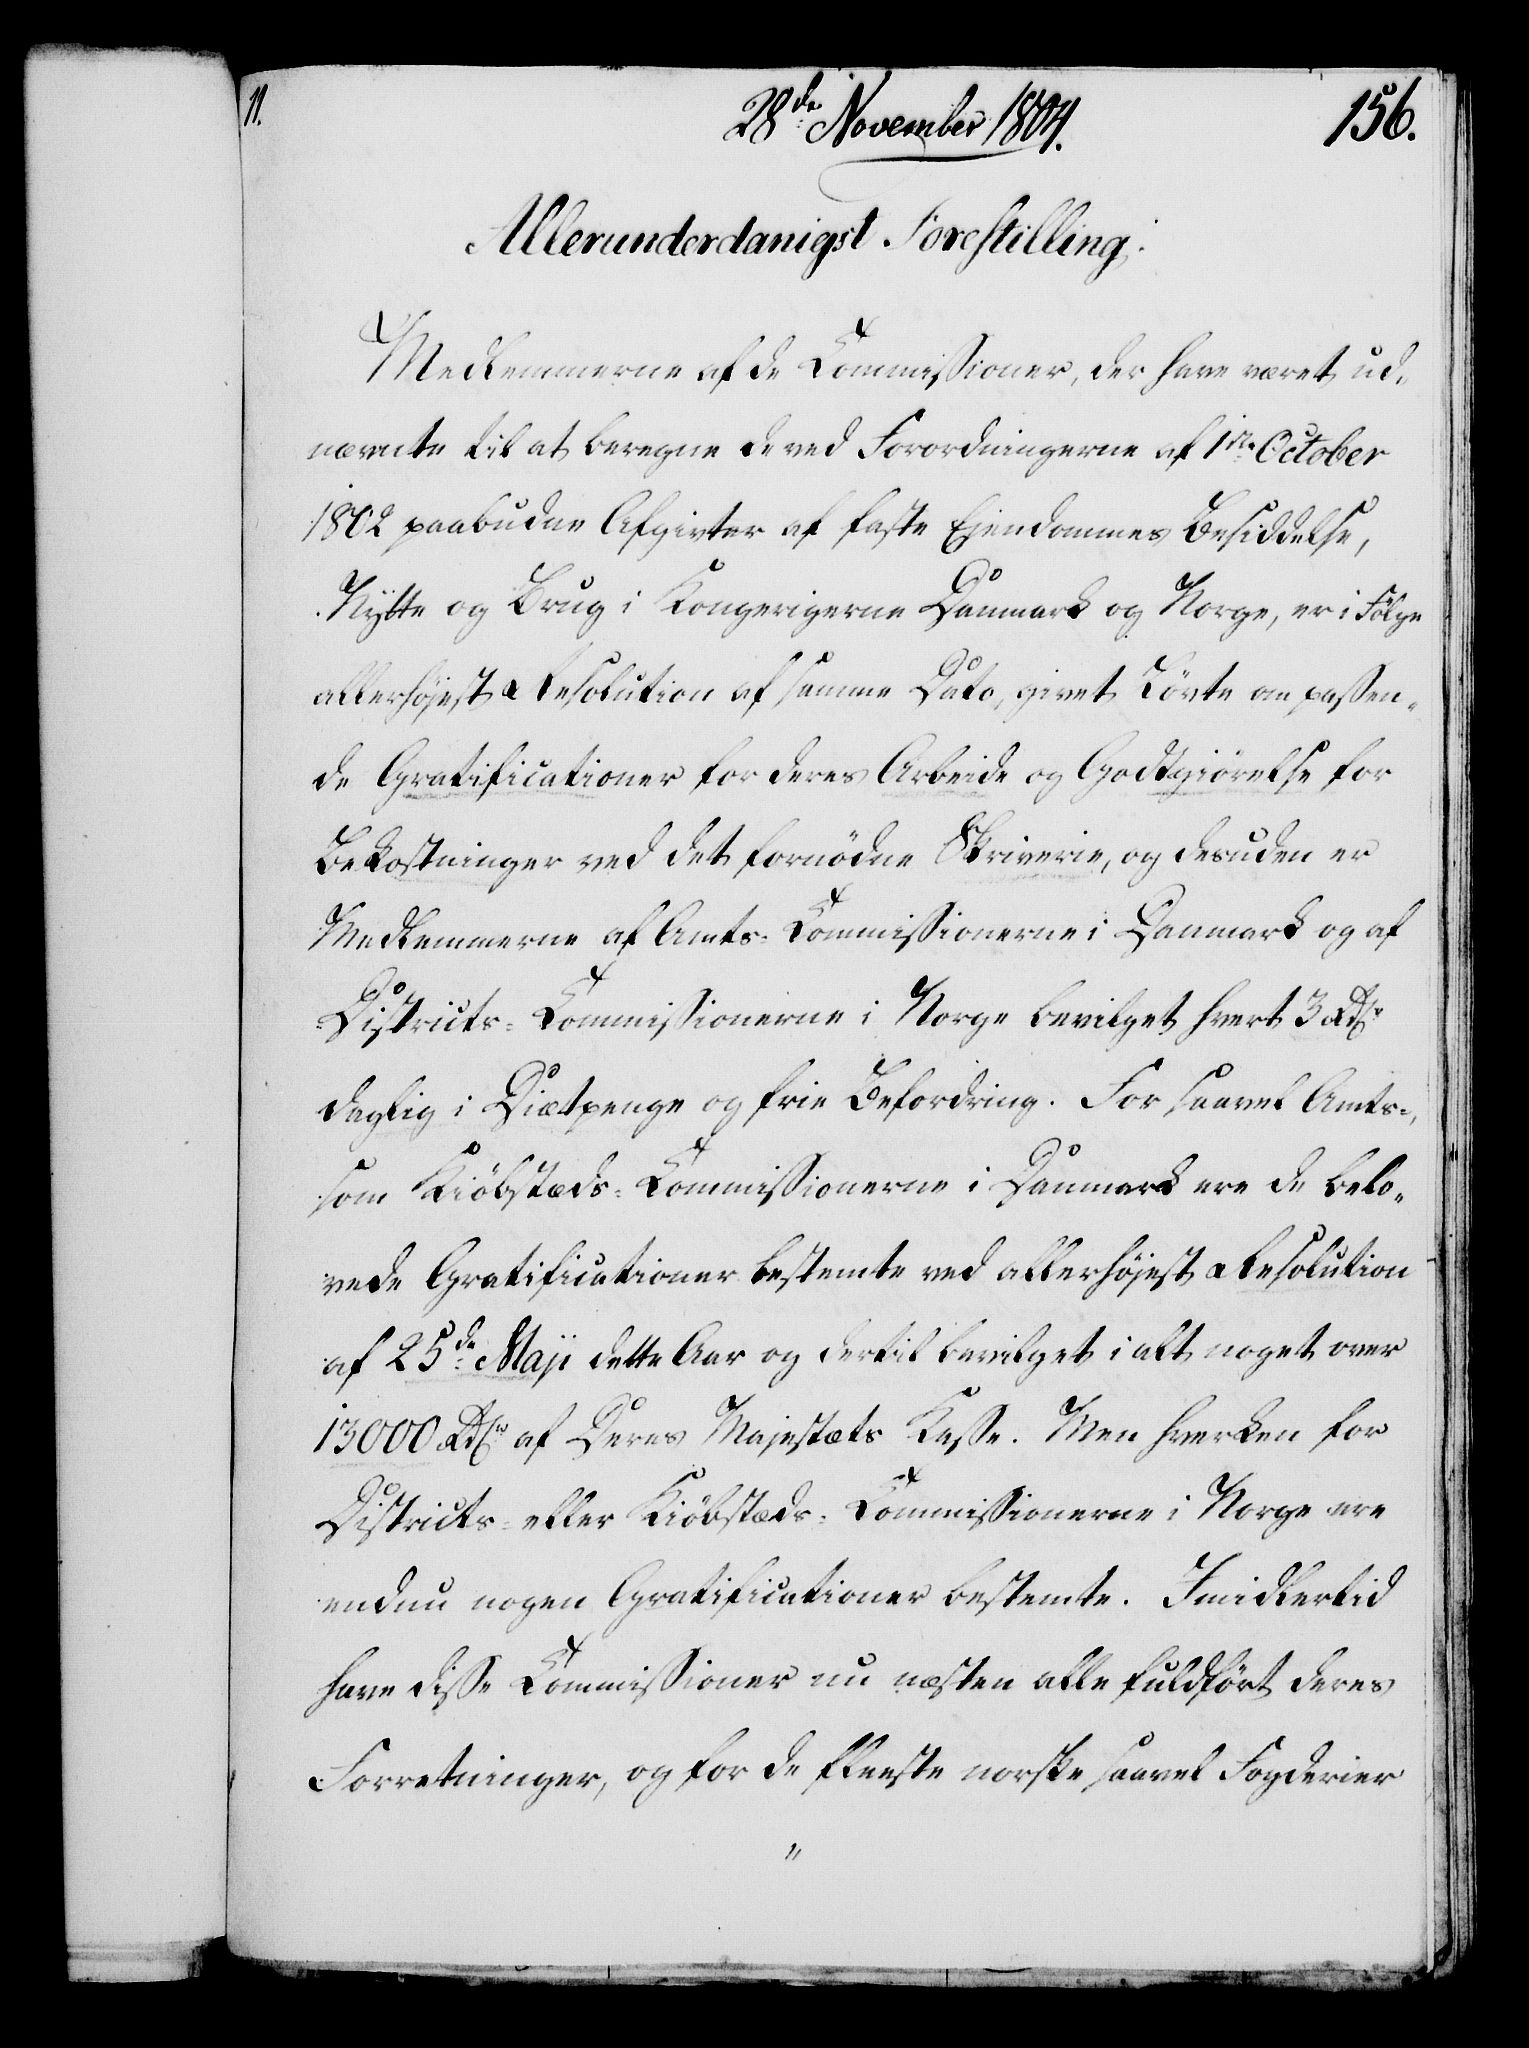 11.
28de November 1804.
156.
Allerunderdanigst Forestilling.
Medlemmerne af de Commissioner, der have været ud-
nævnte til at beregne de ved Forordningerne af 1te October
1802 paabudne Afgivter af faste Ejendommes Besiddelse,
Nytte og Brug i Kongerigerne Danmark og Norge, er i Følge
allerhøjest Resolution af samme Dato, givet Løvte om passen-
de Gratificationer for deres Arbeide og Godtgiørelse for
Bekostninger ved det fornødne Skriverie, og desuden er
Medlemmerne af Amts-Commissionerne i Danmark og af
Districts-Commissionerne i Norge bevilget hvert 3 Rdlr
daglig i Diætpenge og frie Befordring. For saavel Amts-,
som Kiøbstæds-Commissionerne i Danmark ere de belo-
vede Gratificationer bestemte ved allerhøjest Resolution
af 25de Maji dette Aar og dertil bevilget i alt noget over
13000 Rdlr af Deres Majestæts Kasse. Men hverken for
Districts- eller Kiøbstæds-Commissionerne i Norge ere
endnu nogen Gratificationer bestemte. Imidlertid
have disse Commissioner nu næsten alle fuldført deres
Forretninger, og for de fleeste norske saavel Fogderier
"